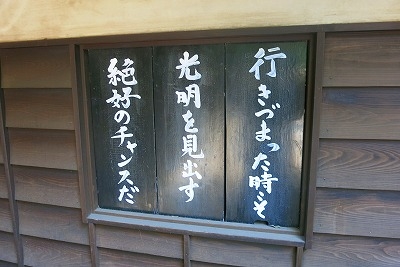 行きづまった時こそ
光明を見出す
絶好のチャンスだ